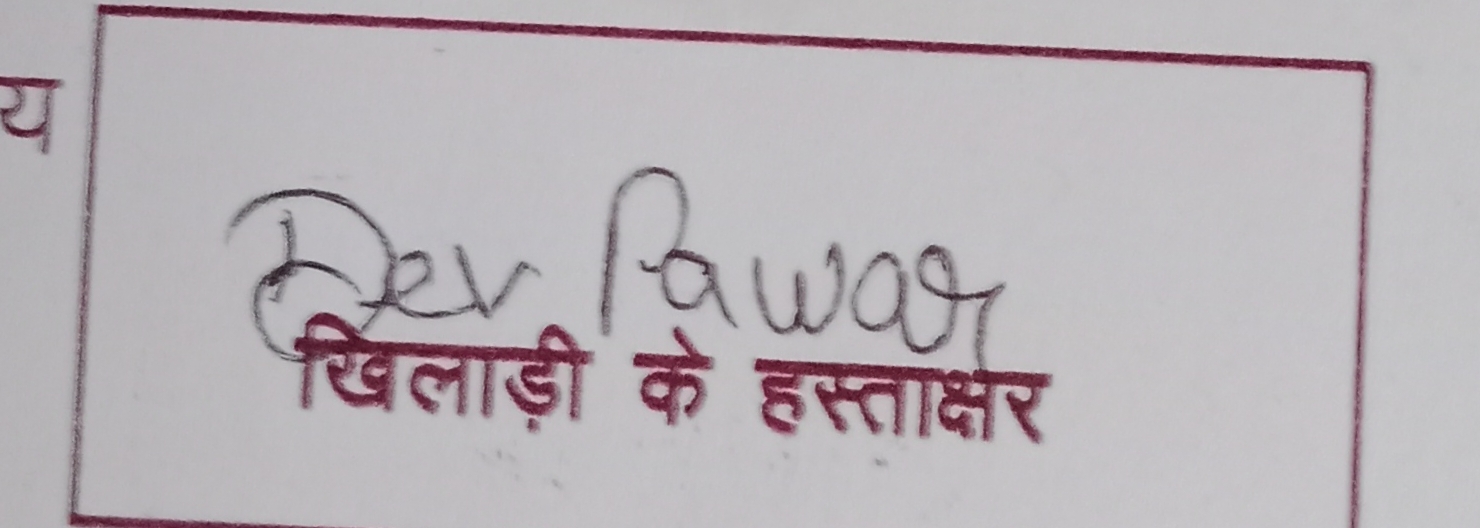 य
Dev Pawar
खिलाड़ी के हस्ताक्षर